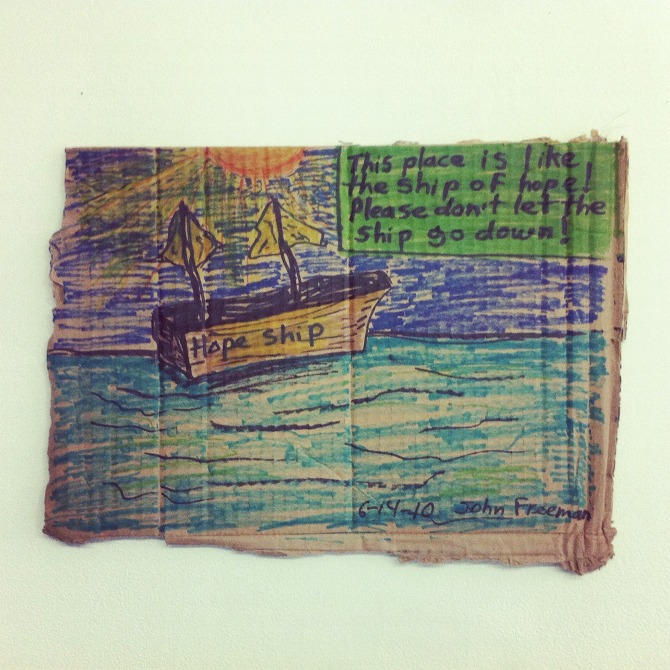 This place is like
the ship of hope!
Please don't let the
ship go down!
Hope Ship
6-14-10 John Freeman